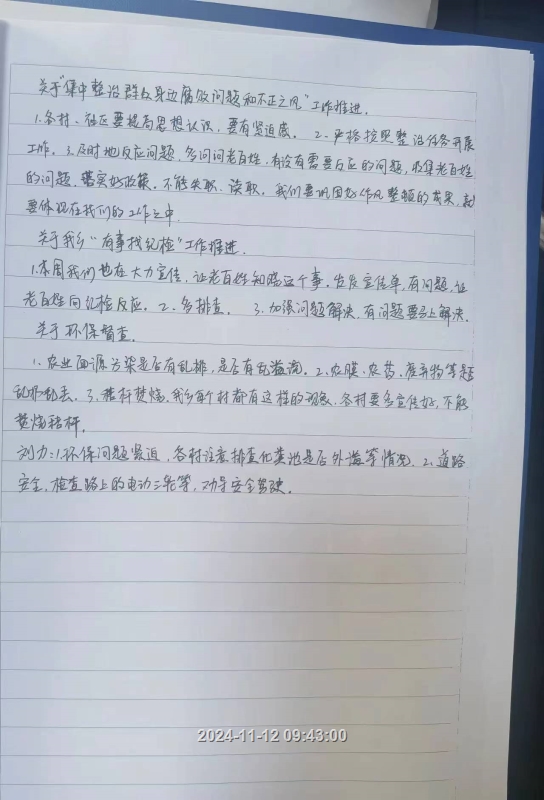 关于“集中整治群众身边腐败问题和不正之风”工作推进.
1.各村、社区要提高思想认识,要有紧迫感. 2.严格按照整治任务开展
工作. 3.及时地反应问题,多问问老百姓,有没有需要反应的问题,收集老百姓
的问题,落实好政策.不能失职、渎职.我们要巩固好作风整顿的成果,就
要体现在我们的工作之中.
关于我乡“有事找纪检”工作推进.
1.本周我们也在大力宣传,让老百姓知晓这个事.发宣传单,有问题,让
老百姓向纪检反应. 2.多排查. 3.加强问题解决,有问题要马上解决.
关于环保督查.
1.农业面源污染是否有乱排,是否有乱溢流. 2.农膜、农药、废弃物等是
乱扔乱丢. 3.秸秆焚烧,我乡每个村都有这样的现象,各村要多宣传好,不能
焚烧秸秆.
刘力:1.环保问题紧迫,各村注意排查化粪池是否外溢等情况. 2.道路
安全,检查路上的电动三轮等,劝导安全驾驶.
2024-11-12 09:43:00